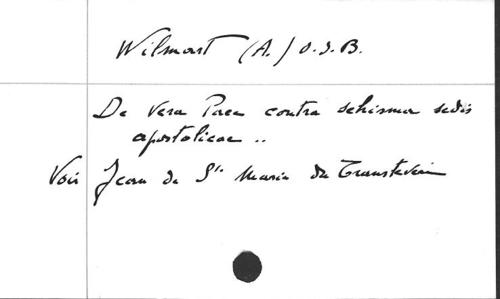 Wilmart (A.) O.S.B.
De Vera Pace contra schisma sedis
apostolicae ..
Voir Jean de Ste Marie du Transtévère